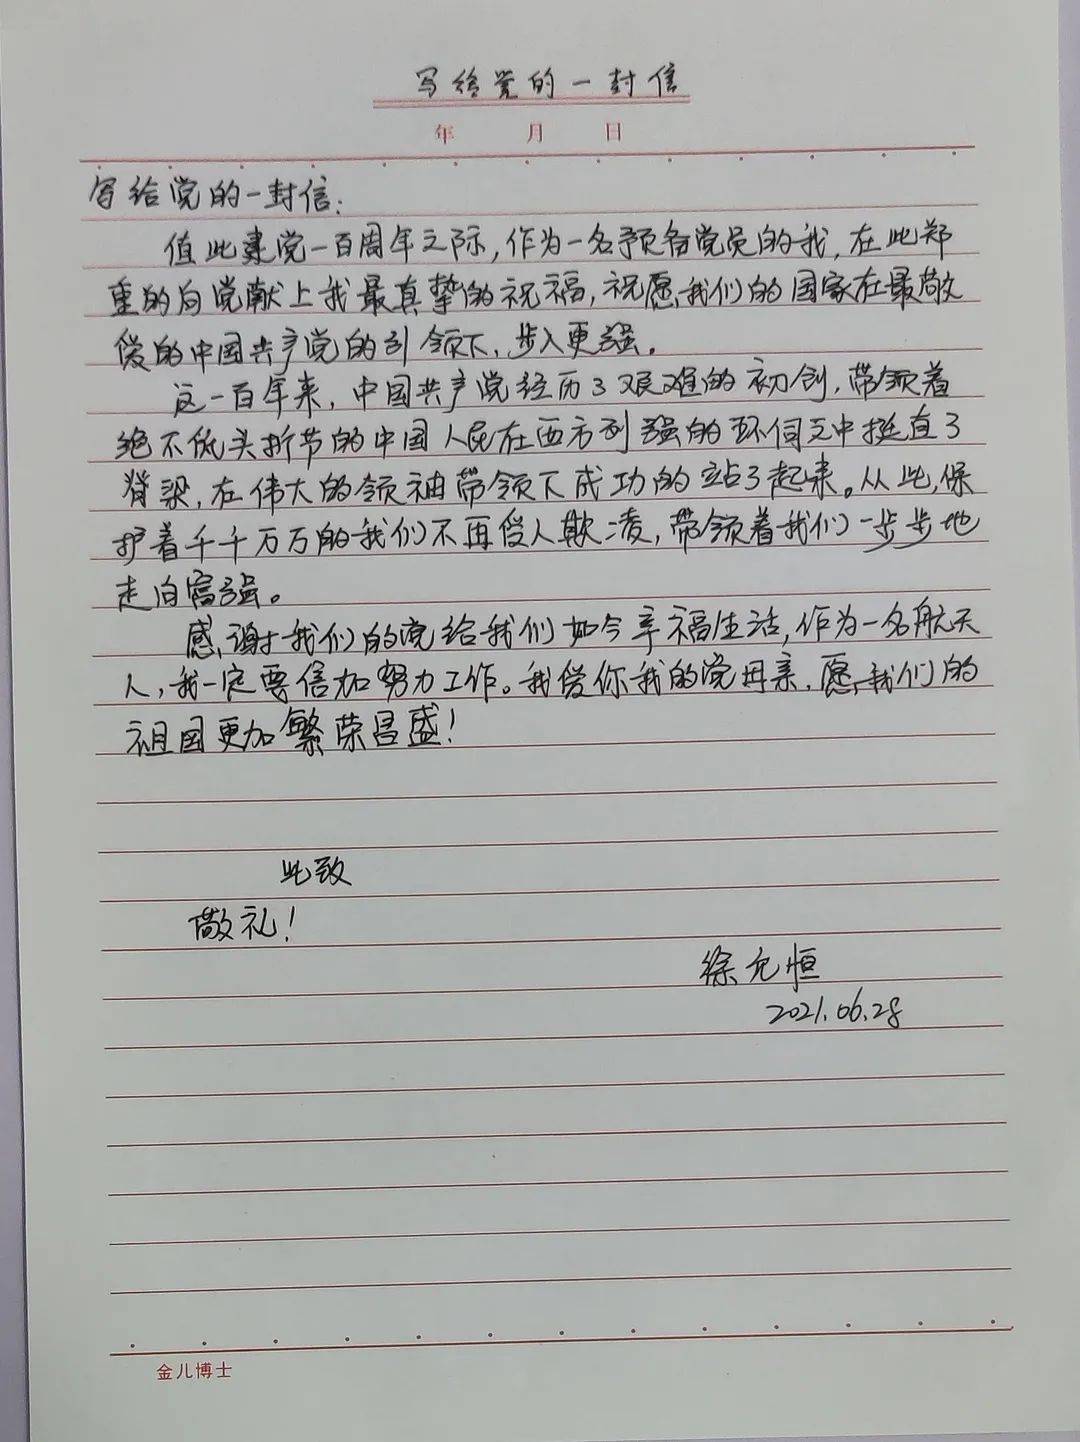 写给党的一封信
年 月 日
写给党的一封信：
值此建党一百周年之际，作为一名预备党员的我，在此郑
重的向党献上我最真挚的祝福，祝愿我们的国家在最敬
爱的中国共产党的引领下，步入更强。
这一百年来，中国共产党经历了艰难的初创，带领着
绝不低头折节的中国人民在西方列强的环伺之中挺直了
脊梁，在伟大的领袖带领下成功的站了起来。从此，保
护着千千万万的我们不再受人欺凌，带领着我们一步步地
走向富强。
感谢我们的党给我们如今幸福生活，作为一名航天
人，我一定要倍加努力工作。我爱你我的党母亲，愿我们的
祖国更加繁荣昌盛！
此致
敬礼！
徐允恒
2021.06.28
金儿博士